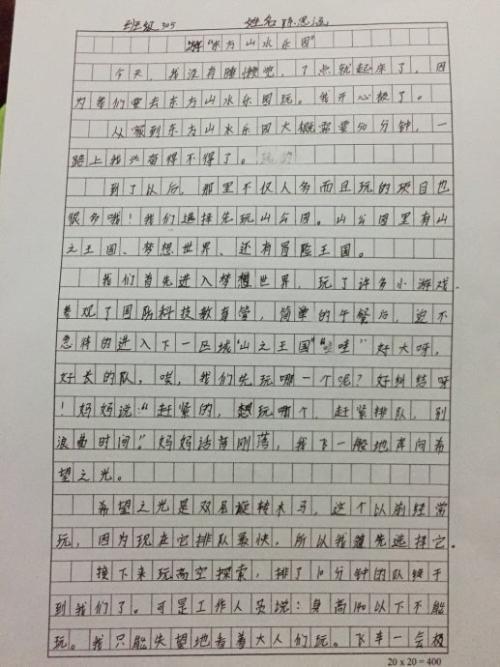 班级 305 姓名 陈思涵
游“东方山水乐园”
今天，我没有睡懒觉，7点就起床了，因
为我们要去东方山水乐园玩。我开心极了。
从家到东方山水乐园大概需要50分钟，一
路上我兴奋得不得了。
到了以后，那里不仅人多而且玩的项目也
很多哦！我们选择先玩山公园。山公园里有山
之王国、梦想世界、还有冒险王国。
我们首先进入梦想世界，玩了许多小游戏.
参观了国防科技教育馆，简单的午餐后，迫不
急待的进入下一区域“山之王国”“哇” 好大呀，
好长的队，唉，我们先玩哪一个呢？好纠结呀
！妈妈说：“赶紧的，想玩哪个，赶紧排队，别
浪费时间。”妈妈话音刚落，我飞一般地奔向希
望之光。
希望之光是双层旋转木马，这个以前经常
玩，因为现在它排队最快，所以我首先选择它.
接下来玩高空探索，排了10分钟的队终于
到我们了。可是工作人员说：身高140以下不能
玩。我只能失望地看着大人们玩。飞车一会极
20×20=400